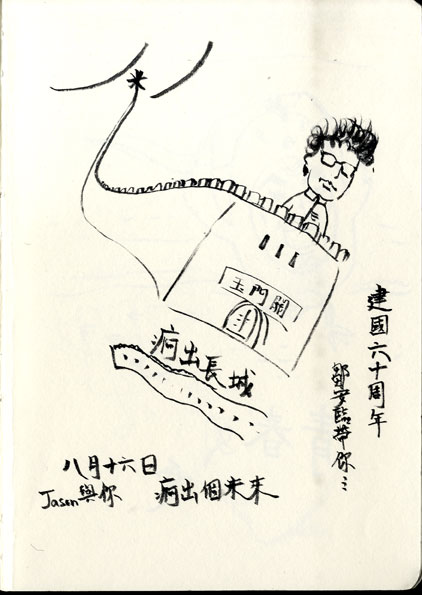 玉門關
疴出長城
建國六十周年
帶你…
八月十六日
Jason與你 疴出個未來